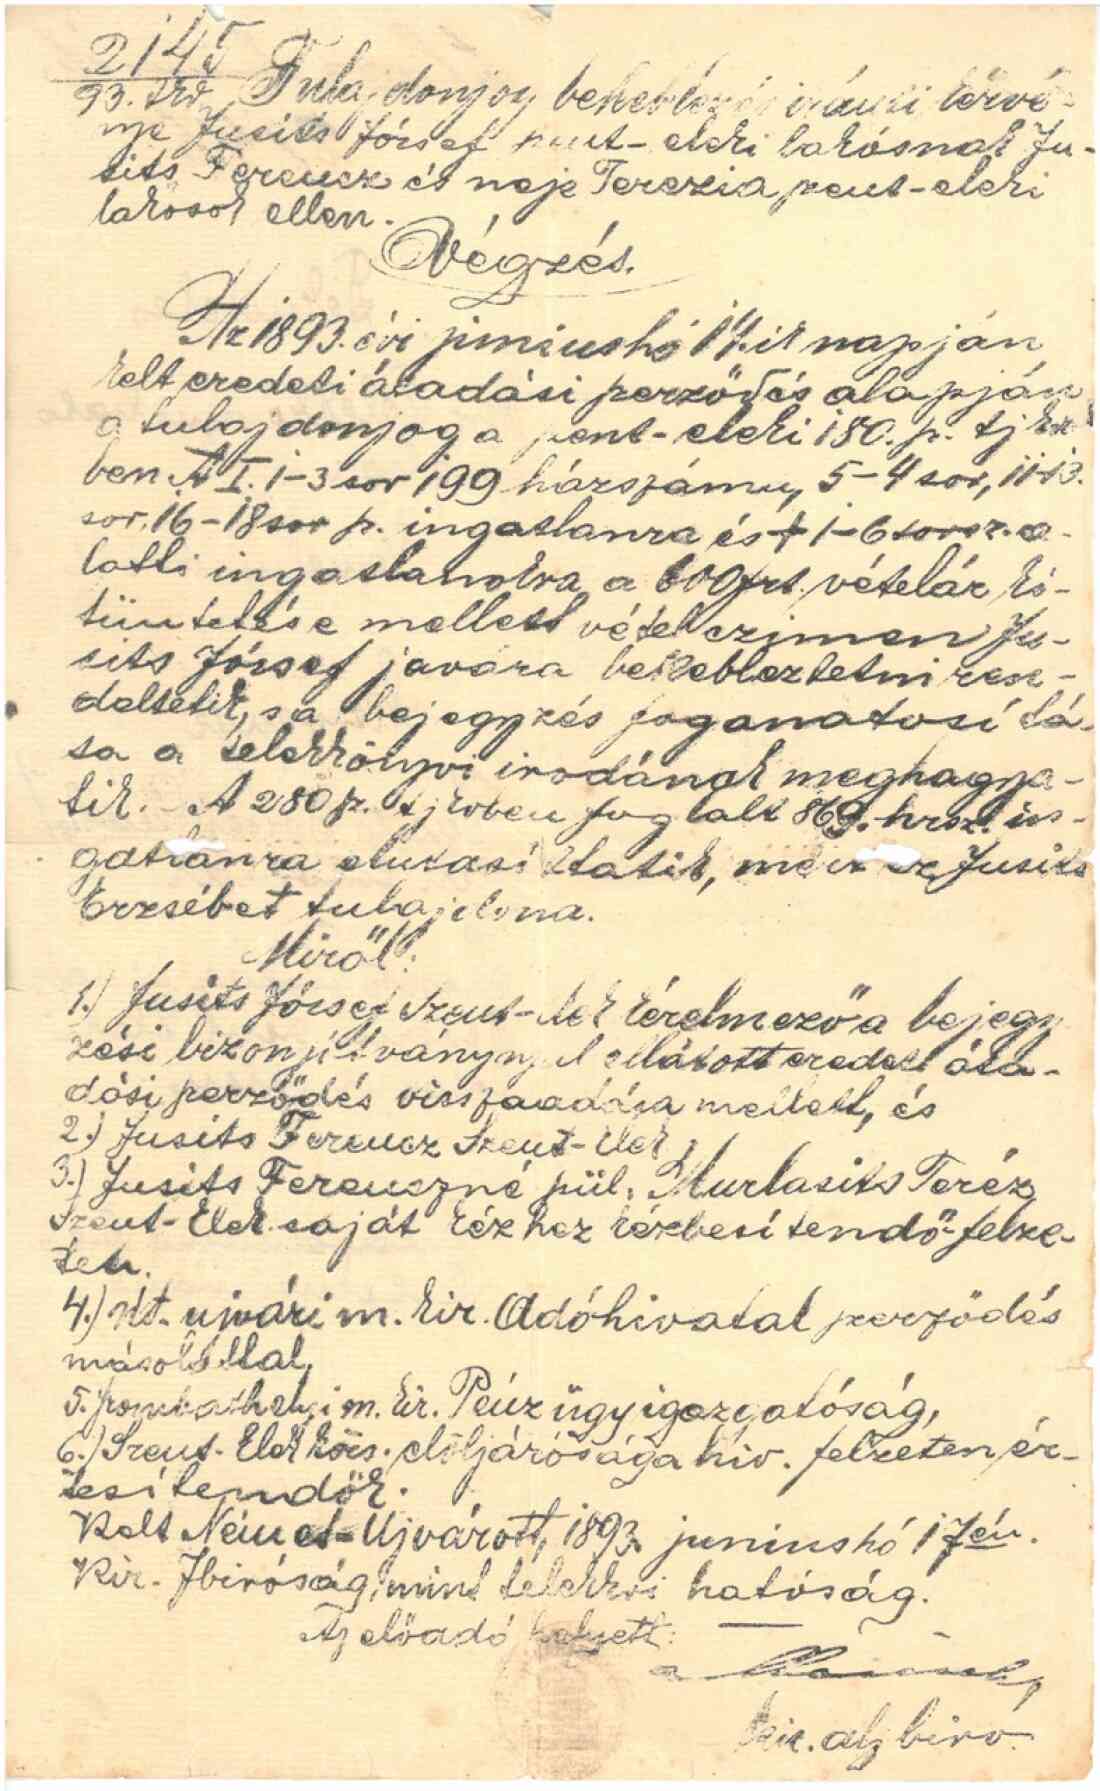 2145
93. tkv. Tulajdonjog bekeblezés iránti kérvé-
nye Jusits József szent-eleki lakósnak Ju-
sits Ferencz és neje Terezia szent-eleki
lakosok ellen.
Végzés.
Az 1893. évi juniushó 17.ik napján
kelt eredeti átadási szerződés alapján
a tulajdonjog a szent-eleki 180. sz. tjkv
ben A I. 1-3 sor 199 házszámu, 5-4 sor, 11-13.
sor, 16-18 sor sz. ingatlanra és † 1-6 sorsz. a-
latti ingatlanokra a 600 frt. vételár ki-
tüntetése mellett vétel czimen Ju-
sits József javára bekebleztetni ren-
deltetik, s a bejegyzés foganatosítá-
sa a telekkönyvi irodának meghagya-
tik. - A 280 sz. tjkvben foglalt 869. hrsz. in-
gatlanra elutasíttatik, mert ez Jusits
Erzsébet tulajdona.
Miről:
1.) Jusits József Szent-Elek kérelmező a bejegy
zési bizonyítványnyal ellátott eredeti áta-
dási szerződés visszaadása mellett, és
2.) Jusits Ferencz Szent-Elek
3.) Jusits Ferenczné szül. Murlasits Teréz
Szent-Elek saját kézhez kézbesítendő felze-
ten.
4.) Nt. ujvári m. kir. Adóhivatal szerződés
másolattal,
5. szombathelyi m. kir. Pénzügyigazgatóság,
6.) Szent-Elek közs. elöljárósága hiv. felzeten ér-
tesítendők.
Kelt Német-Ujvárott, 1893. juniushó 17én.
Kir. Jbiróság, mint telekkvi hatóság.
Az előadó helyett:
kir. alj biro.